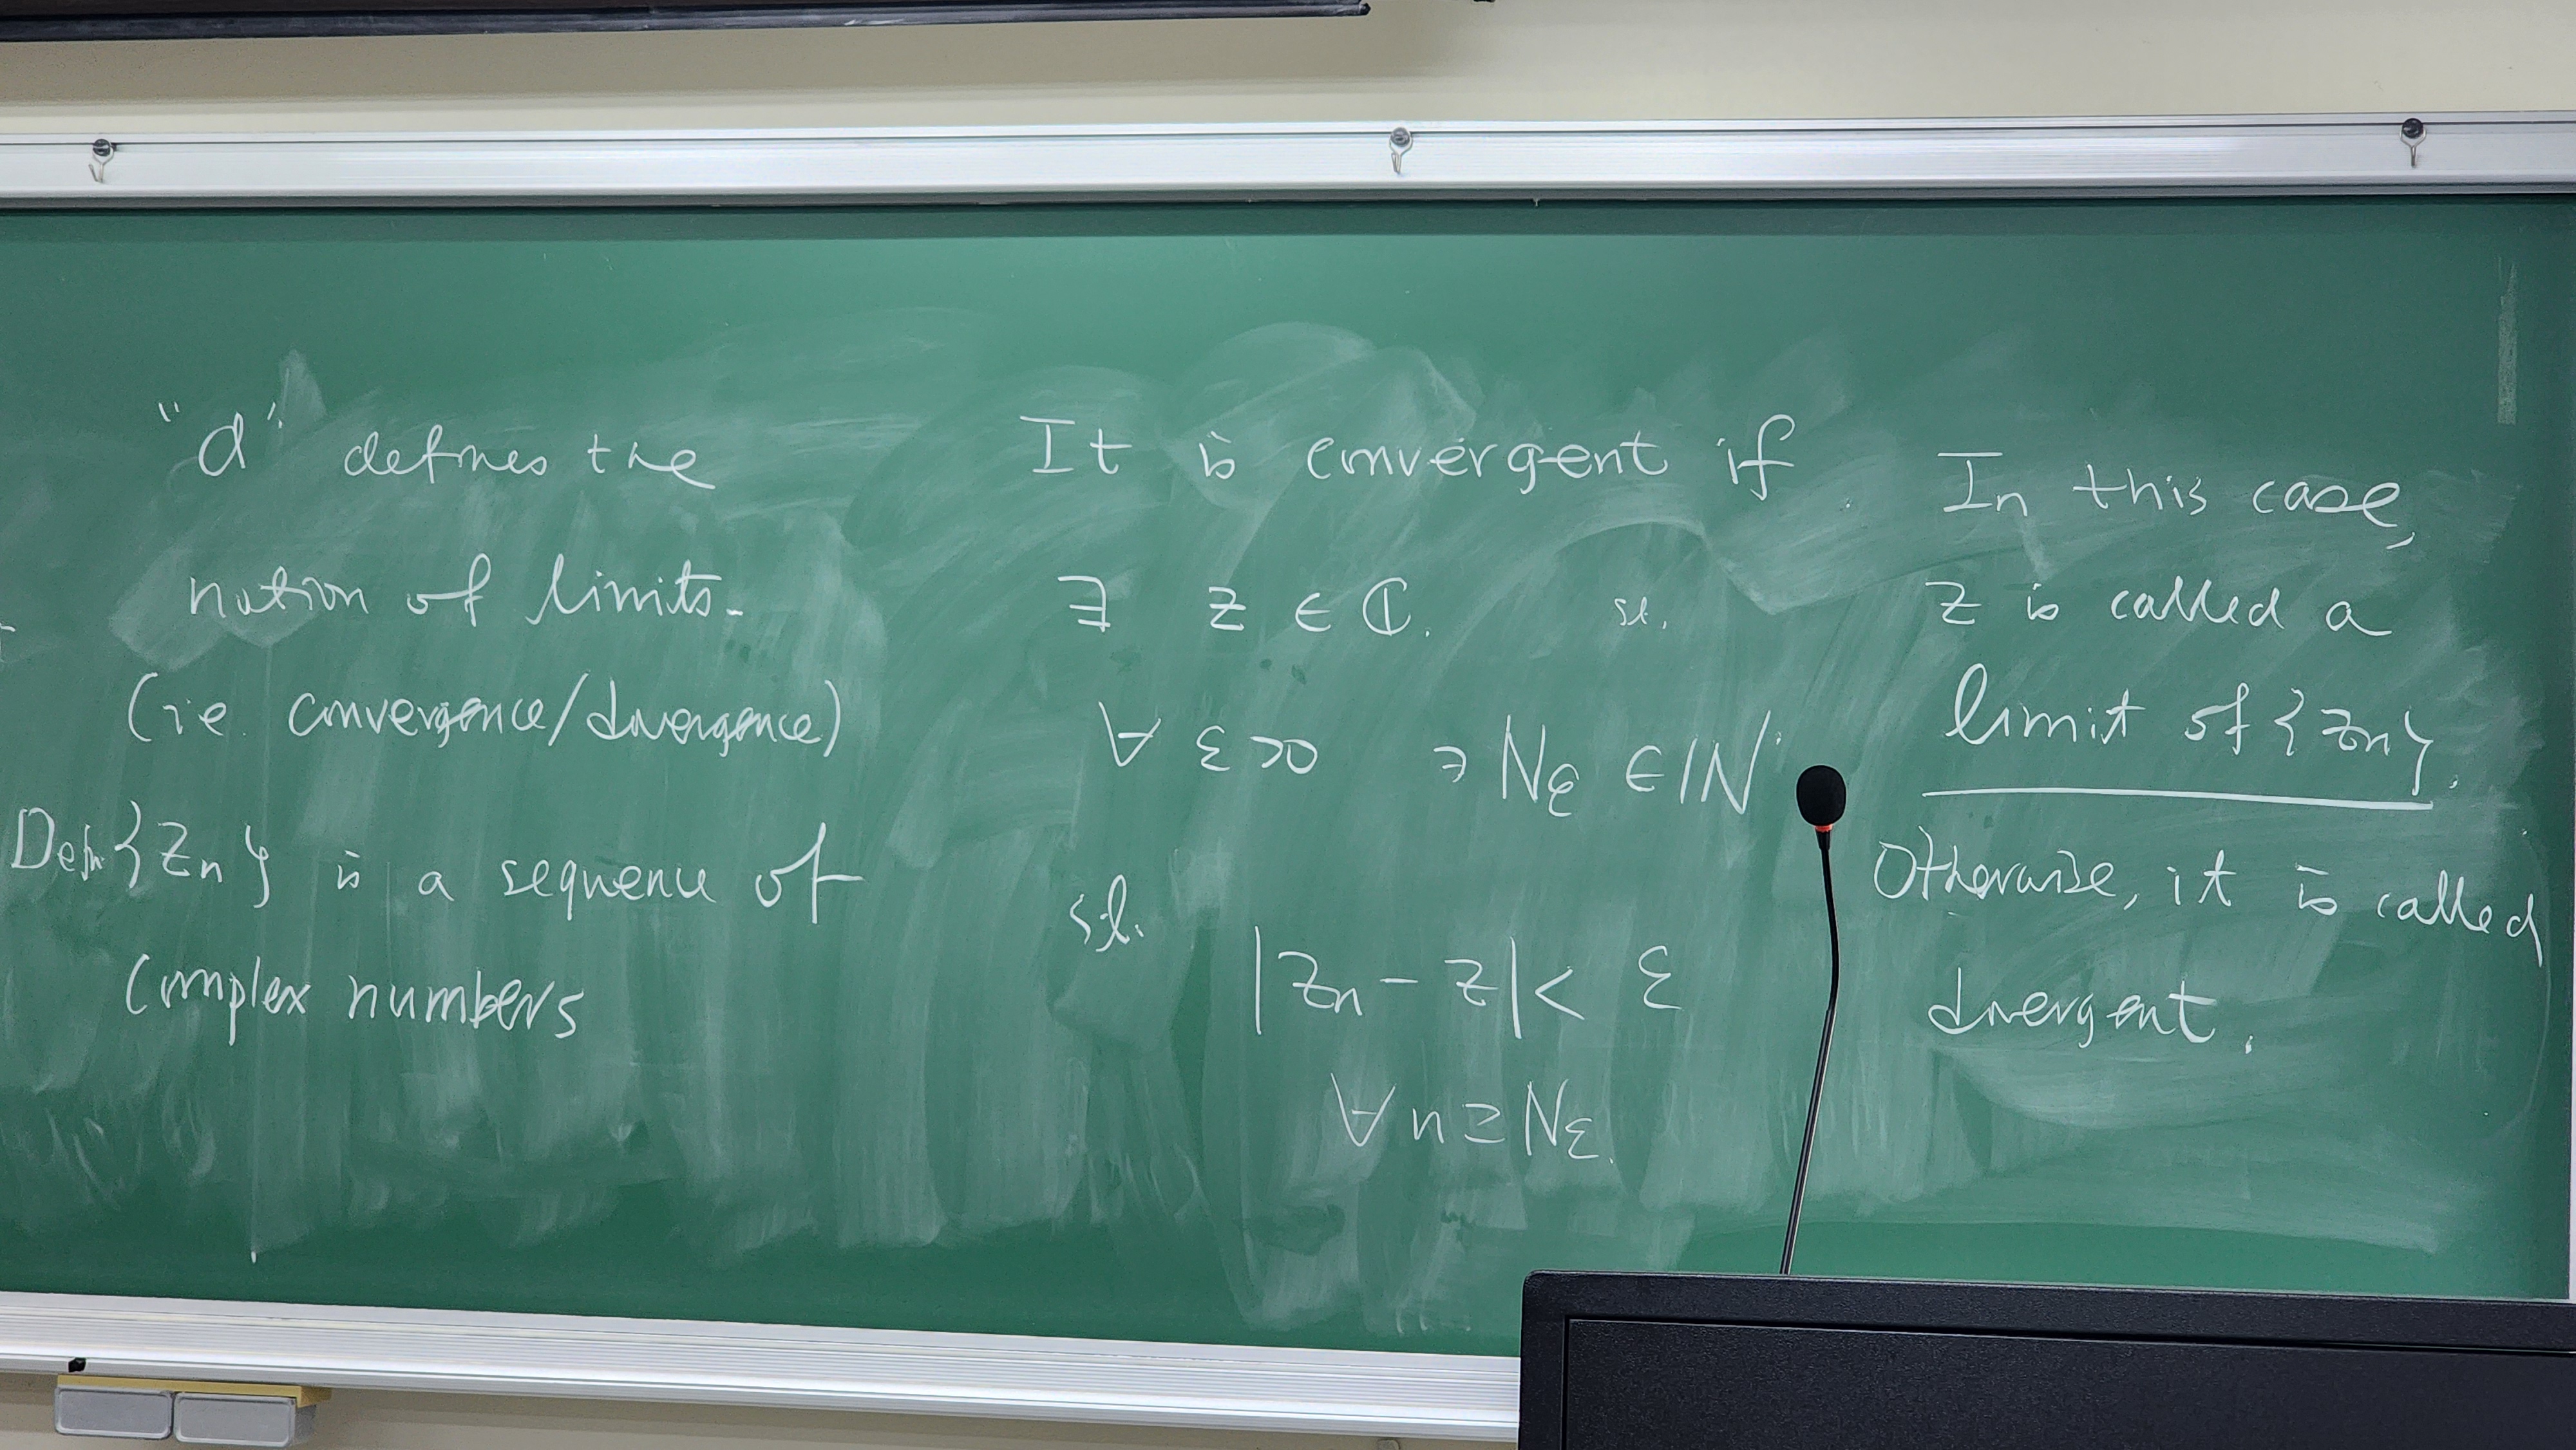 "d" defines the
notion of limits.
(ie. convergence/divergence)
Defn {Zn} is a sequence of
Complex numbers
It is convergent if
∃ z ∈ ℂ. st.
∀ ε>0 ∃ Nε ∈ ℕ
st.
|Zn - z| < ε
∀ n ≥ Nε.
In this case,
z is called a
limit of {Zn}.
Otherwise, it is called
divergent.